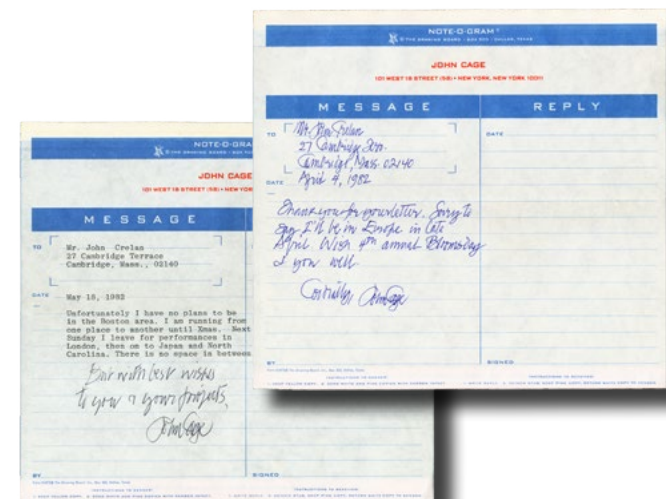 NOTE-O-GRAM
© THE DRAWING BOARD • BOX 505 • DALLAS, TEXAS
JOHN CAGE
101 WEST 18 STREET (5B) • NEW YORK, NEW YORK 10011
MESSAGE REPLY
TO
Mr. John Crelan
27 Cambridge Terr.
Cambridge, Mass. 02140
DATE
April 9, 1982
DATE
Thank you for your letter. Sorry to
say I'll be in Europe in late
April. Wish 4th annual Bloomsday
& you well.
Cordially, John Cage
BY SIGNED
NOTE-O-GRA
JOHN CAGE
101 WEST 18 STREET (5B) • NEW YOR
MESSAGE
TO
Mr. John Crelan
27 Cambridge Terrace
Cambridge, Mass., 02140
DATE
May 18, 1982
Unfortunately I have no plans to be
in the Boston area. I am running from
one place to another until Xmas. Next
Sunday I leave for performances in
London, then on to Japan and North
Carolina. There is no space in between
But with best wishes
to you & your projects,
John Cage
BY SIGNED